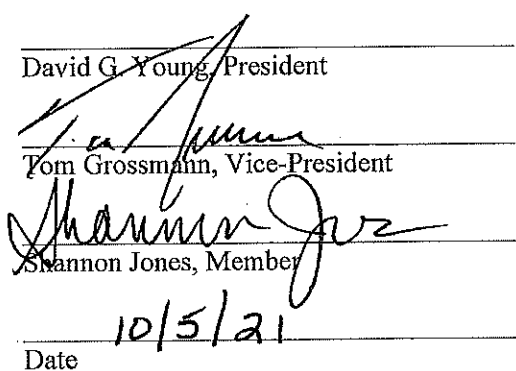 David G. Young, President
Tom Grossmann, Vice-President
Shannon Jones
Shannon Jones, Member
10/5/21
Date